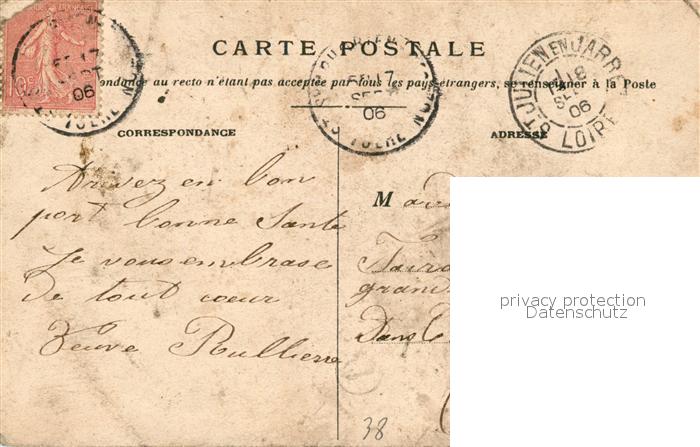 CARTE POSTALE
pondance au recto n'étant pas acceptée par tous les pays étrangers, se renseigner à la Poste
CORRESPONDANCE
ADRESSE
Arivez en bon
port bonne Sante
Je vous embrase
de tout cœur
Veuve Rulliere
M
grand
Dans
38
17
06
17
06
ST JULIEN EN JARRET
18
06
LOIRE
privacy protection
Datenschutz